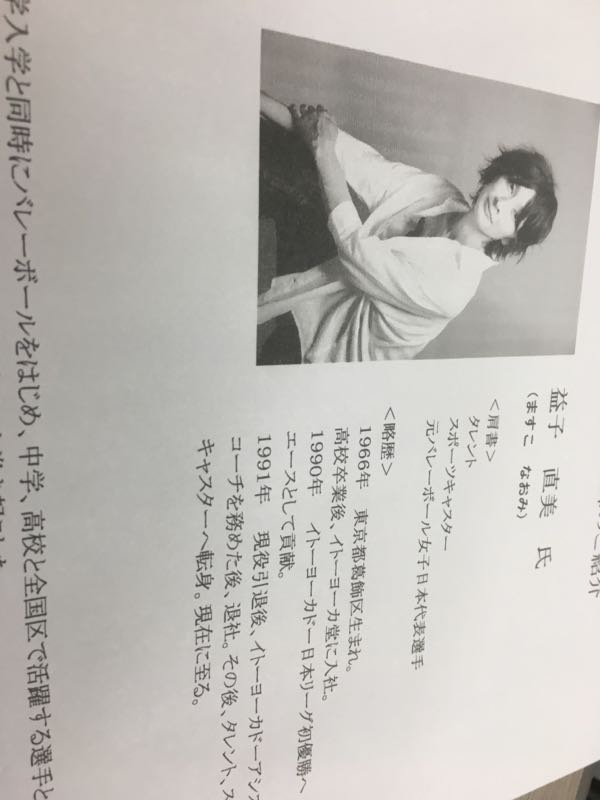 ご紹介
益子 直美 氏
（ますこ なおみ）
＜肩書＞
タレント
スポーツキャスター
元バレーボール女子日本代表選手
＜略歴＞
1966年 東京都葛飾区生まれ。
高校卒業後、イトーヨーカ堂に入社。
1990年 イトーヨーカドー日本リーグ初優勝へ
エースとして貢献。
1991年 現役引退後、イトーヨーカドーアシス
コーチを務めた後、退社。その後、タレント、ス
キャスターへ転身。現在に至る。
学入学と同時にバレーボールをはじめ、中学、高校と全国区で活躍する選手と